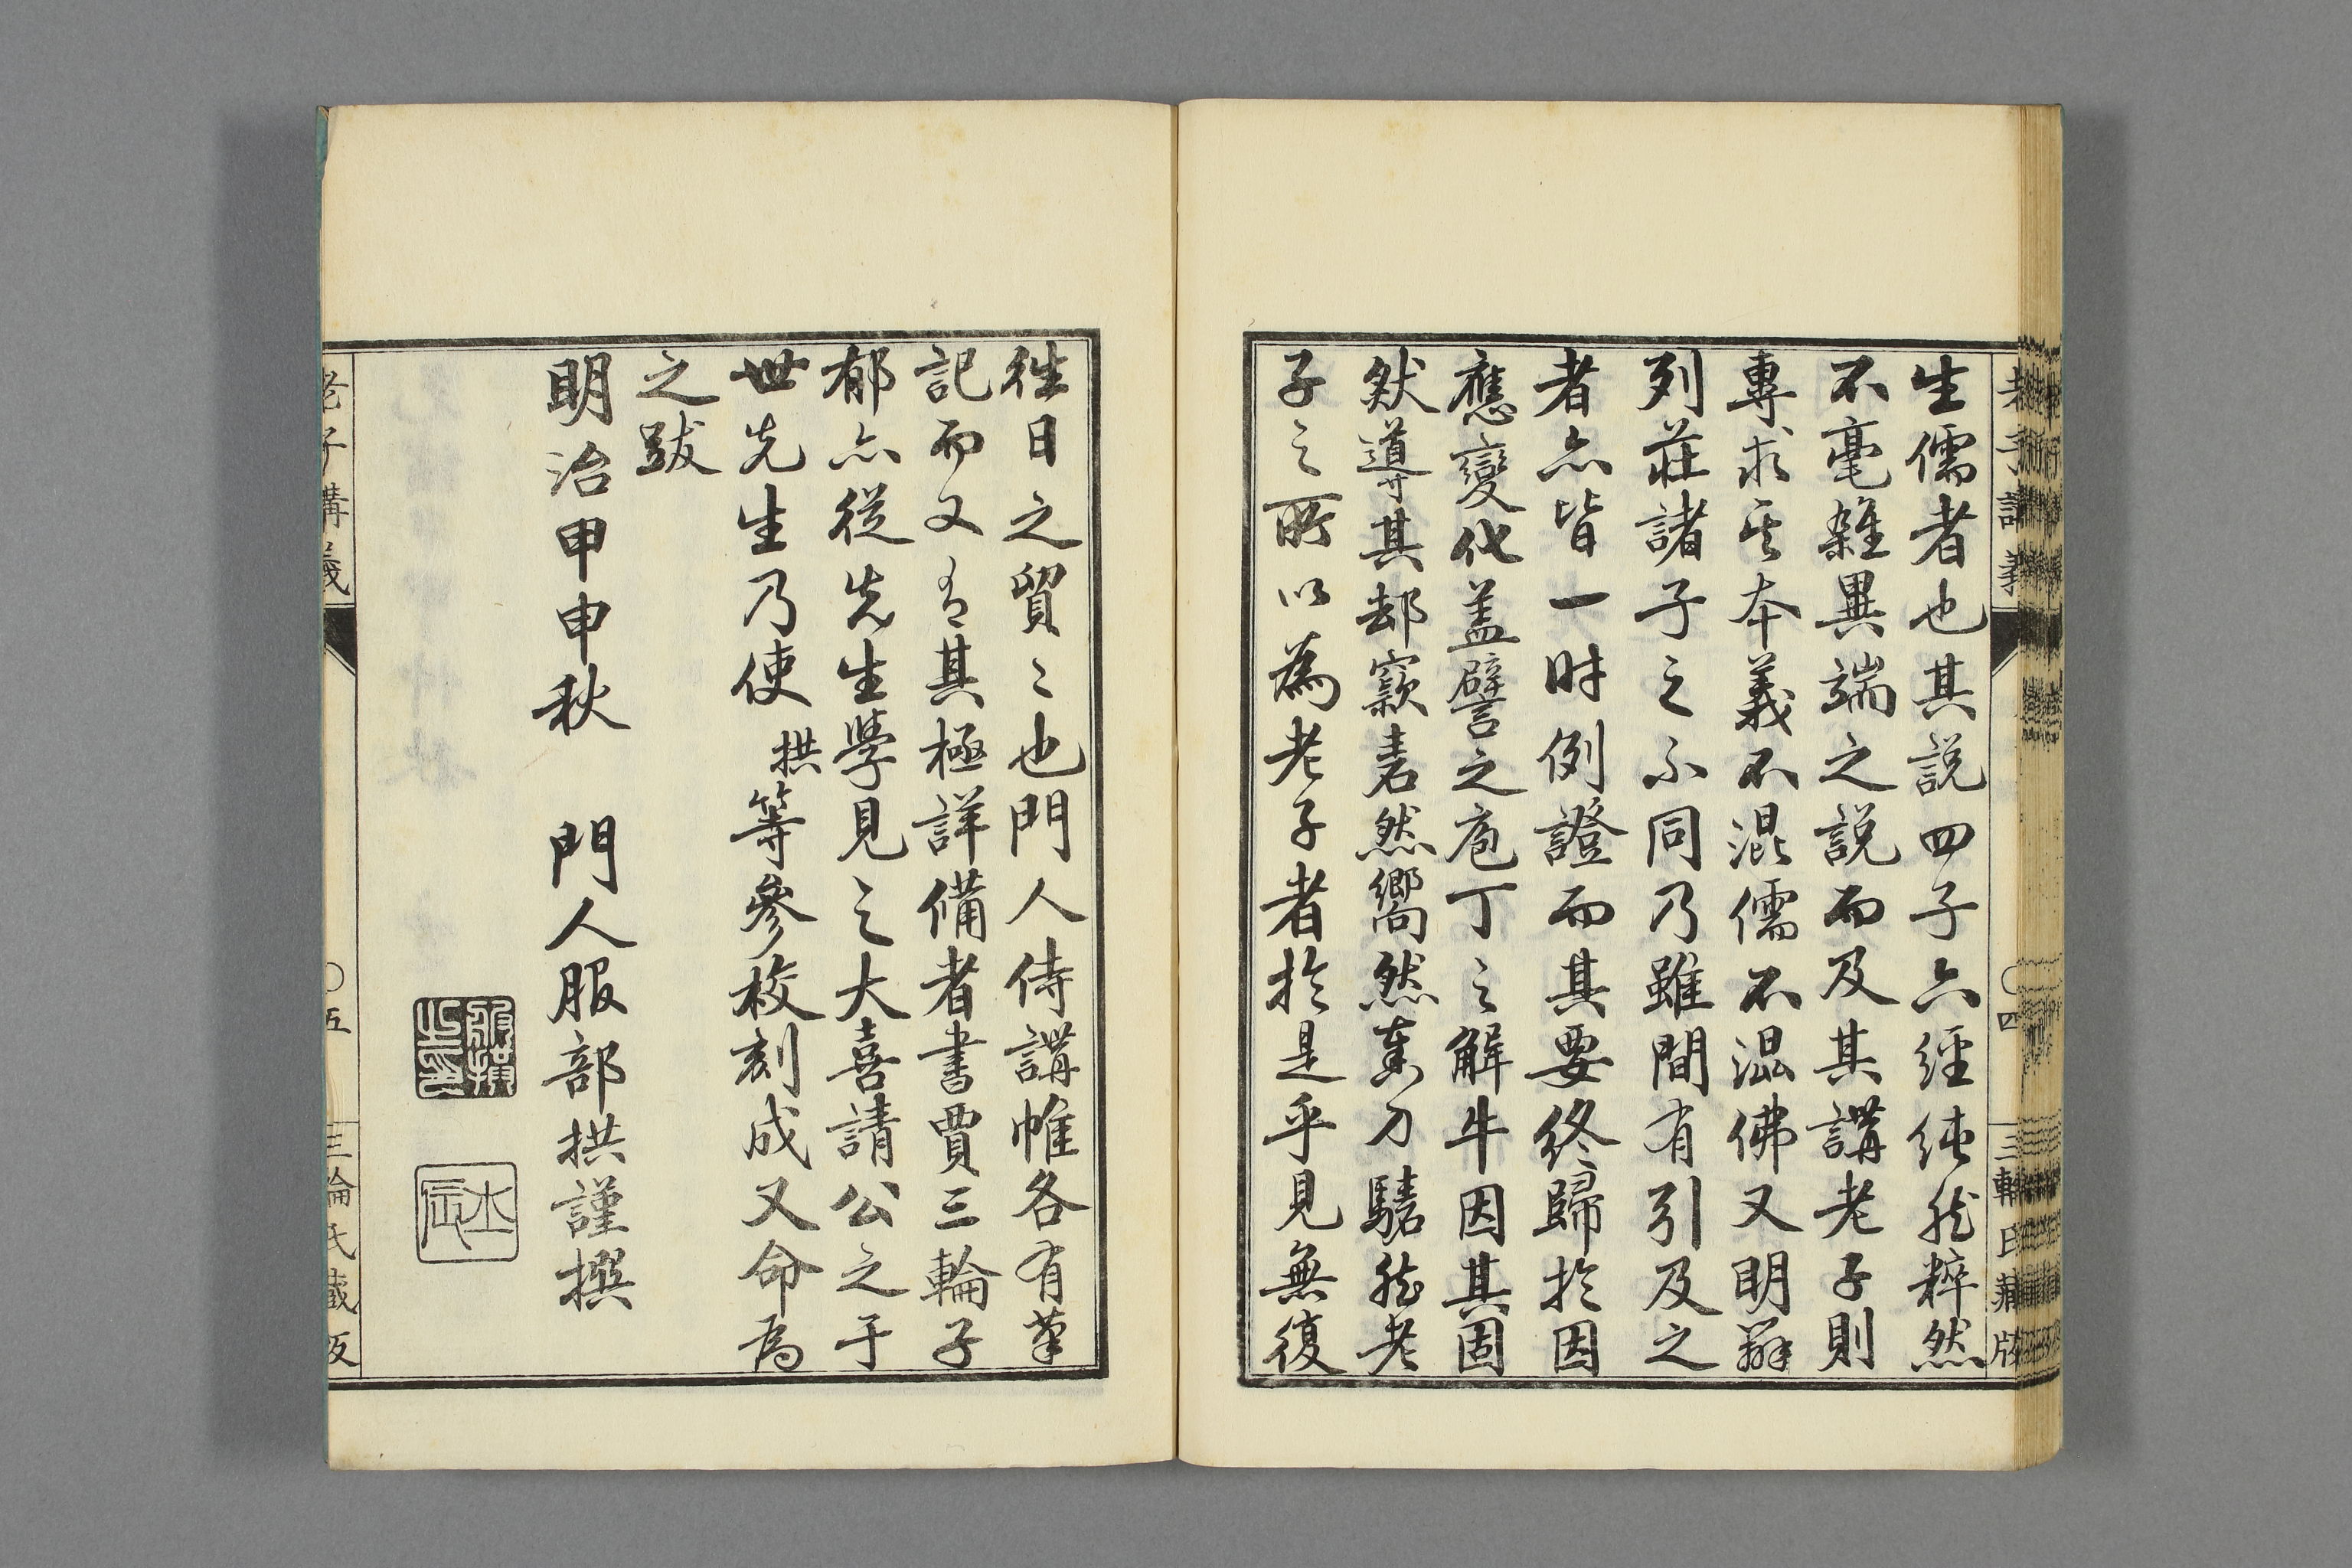 生儒者也其説四子六經純然粹然
不毫雜異端之説而及其講老子則
專求其本義不混儒不混佛又明辨
列莊諸子之不同乃雖間有引及之
者亦皆一時例證而其要終歸於因
應變化蓋譬之庖丁之解牛因其固
然導其却窾砉然嚮然奏刀騞然老
子之所以為老子者於是乎見無復
老子講義
〇四
三輪氏藏版
徃日之貿々也門人侍講帷各有筆
記而又有其極詳備者書賈三輪子
郁亦從先生學見之大喜請公之于
世先生乃使拱等參校刻成又命為
之跋
明治甲申秋 門人服部拱謹撰
老子講義
〇五
三輪氏藏版
服拱之印